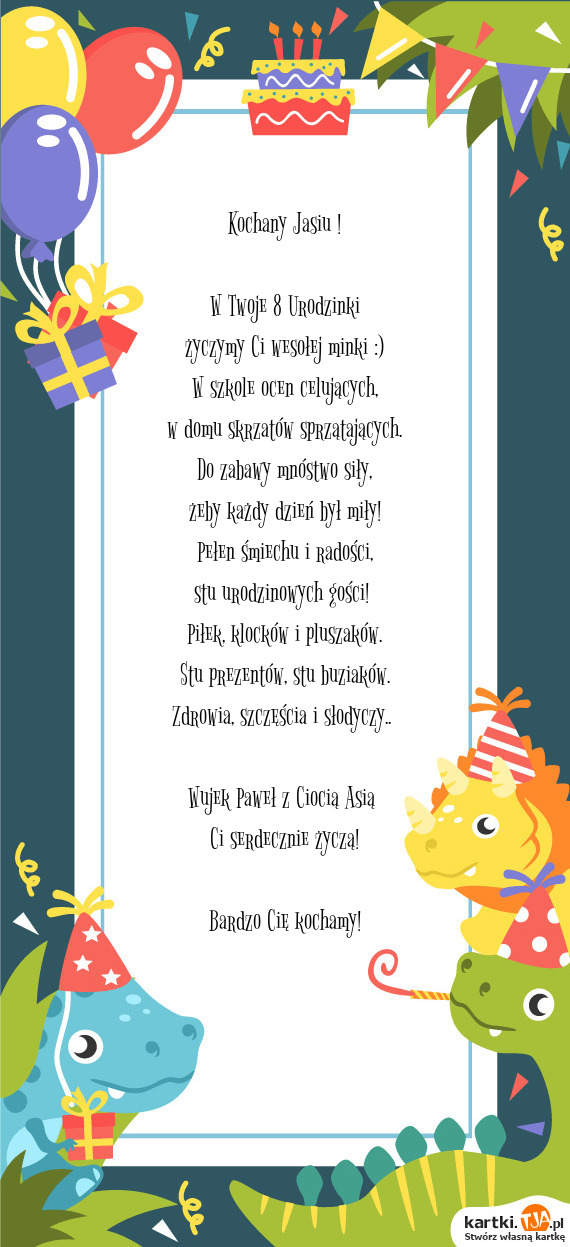 Kochany Jasiu !
W Twoje 8 Urodzinki
życzymy Ci wesołej minki :)
W szkole ocen celujących,
w domu skrzatów sprzątających.
Do zabawy mnóstwo siły,
żeby każdy dzień był miły!
Pełen śmiechu i radości,
stu urodzinowych gości!
Piłek, klocków i pluszaków.
Stu prezentów, stu buziaków.
Zdrowia, szczęścia i słodyczy..
Wujek Paweł z Ciocią Asią
Ci serdecznie życzą!
Bardzo Cię kochamy!
kartki.TJA.pl
Stwórz własną kartkę